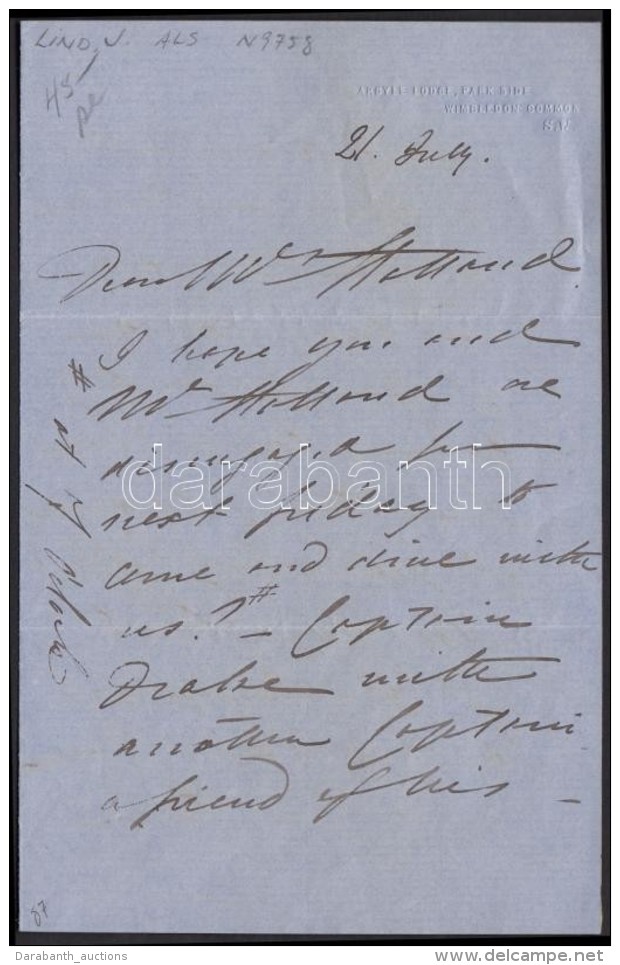 LIND, J. ALS N9758
45
pe
ARGYLE LODGE, PARK SIDE
WIMBLEDON COMMON
S.W.
21. July.
Dear Mrs Holland.
I hope you and
Mr Holland are
disengaged for
next friday to
come and dine with
us? # – Captain
Drake with
another Captain
a friend of his –
# at 7 o'clock
darabanth
87
Darabanth_auctions
delcampe.net